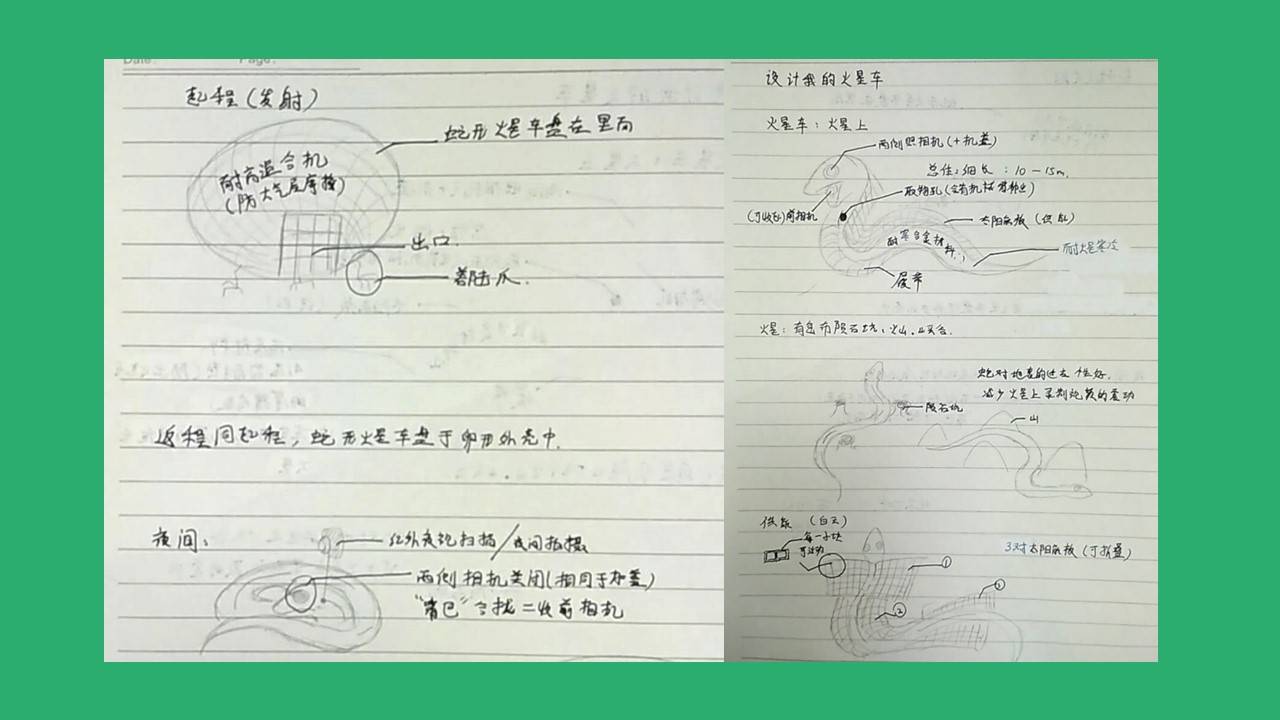 Date: Page:
起程（发射）
蛇形火星车盘在里面
耐高温合机
（防大气层摩擦）
出口
着陆爪.
返程同起程，蛇形火星车盘于卵形外壳中.
夜间：
红外夜视扫描/夜间拍摄
两侧相机关闭（相同于加盖）
"嘴巴"合拢=收前相机
设计我的火星车
火星车：火星上
两侧照相机（+机盖）
总体：细长：10-15m.
取物孔（含有机械臂伸出）
（可收起）前相机
太阳能板（供能）
耐寒合金材料
耐火星寒冷
履带
火星：有密布陨石坑、火山.
蛇对地表的适应性好.
减少火星上采制视频的震动
陨石坑
山
供能（白天）
每一小块
可活动
3对太阳能板（可折叠）
①
②
③